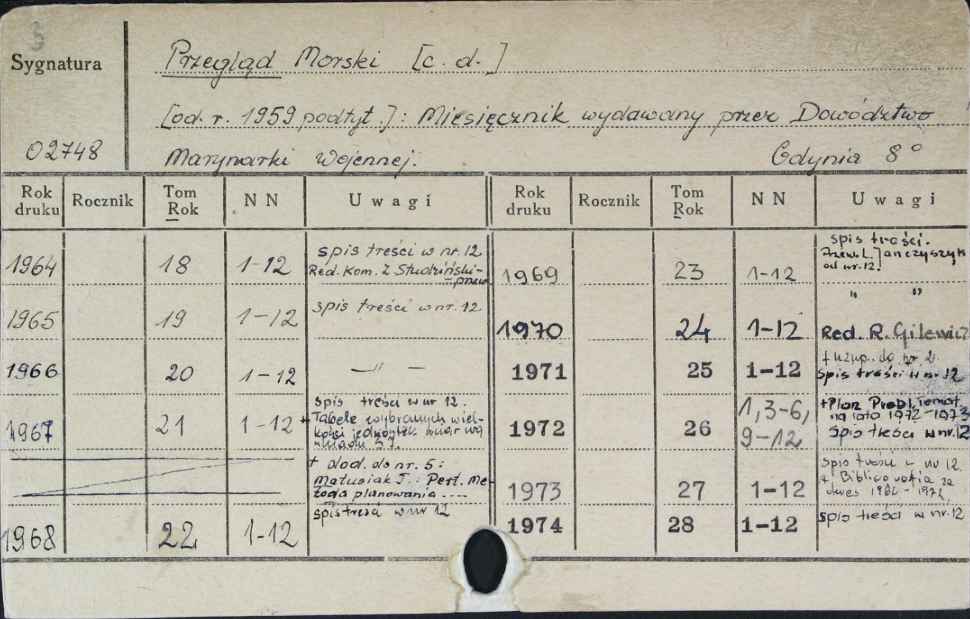 Sygnatura
Przegląd Morski [c. d.]
[od. r. 1959 podtyt.]: Miesięcznik wydawany przez Dowództwo
02748
Marynarki Wojennej. Gdynia 8°
Rok druku Rocznik Tom Rok N N Uwagi Rok druku Rocznik Tom Rok N N Uwagi
1964 18 1-12 spis treści w nr. 12
Red. Kom. Z. Studziński - przew.
1965 19 1-12 spis treści w nr. 12
1966 20 1-12 —"—
1967 21 1-12 spis treści w nr 12.
+ Tabele wybranych wiel-
kości jednostek miar wg
układu SI.
+ dod. do nr. 5:
Matusiak J.: Pert. Me-
toda planowania ....
1968 22 1-12 spis treści w nr 12
1969 23 1-12 spis treści.
Przew. L. Janczyszyn
od nr. 12.
" "
1970 24 1-12 Red. R. Gilewicz
1971 25 1-12 + uzup. do nr 2.
spis treści w nr. 12
1972 26 1,3-6, 9-12 + Plan
na lata 1972-1973
spis treści w nr. 12
1973 27 1-12 spis treści w nr 12
+ Bibliografia za
okres
1974 28 1-12 spis treści w nr. 12